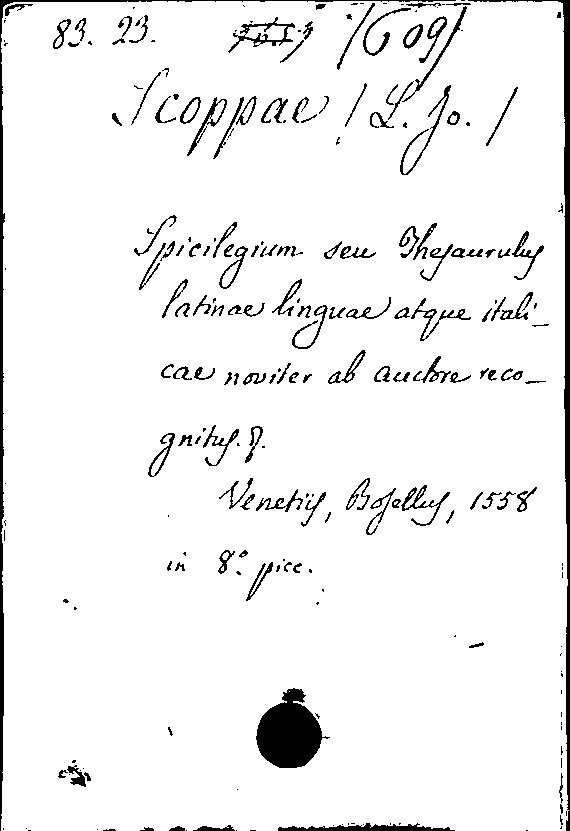 83. 23. (609)
Scoppae / L. Jo. /
Spicilegium seu Thesaurulus
latinae linguae atque itali-
cae noviter ab auctore reco-
gnitus. &.
Venetiis, Bosellus, 1558
in 8.° picc.